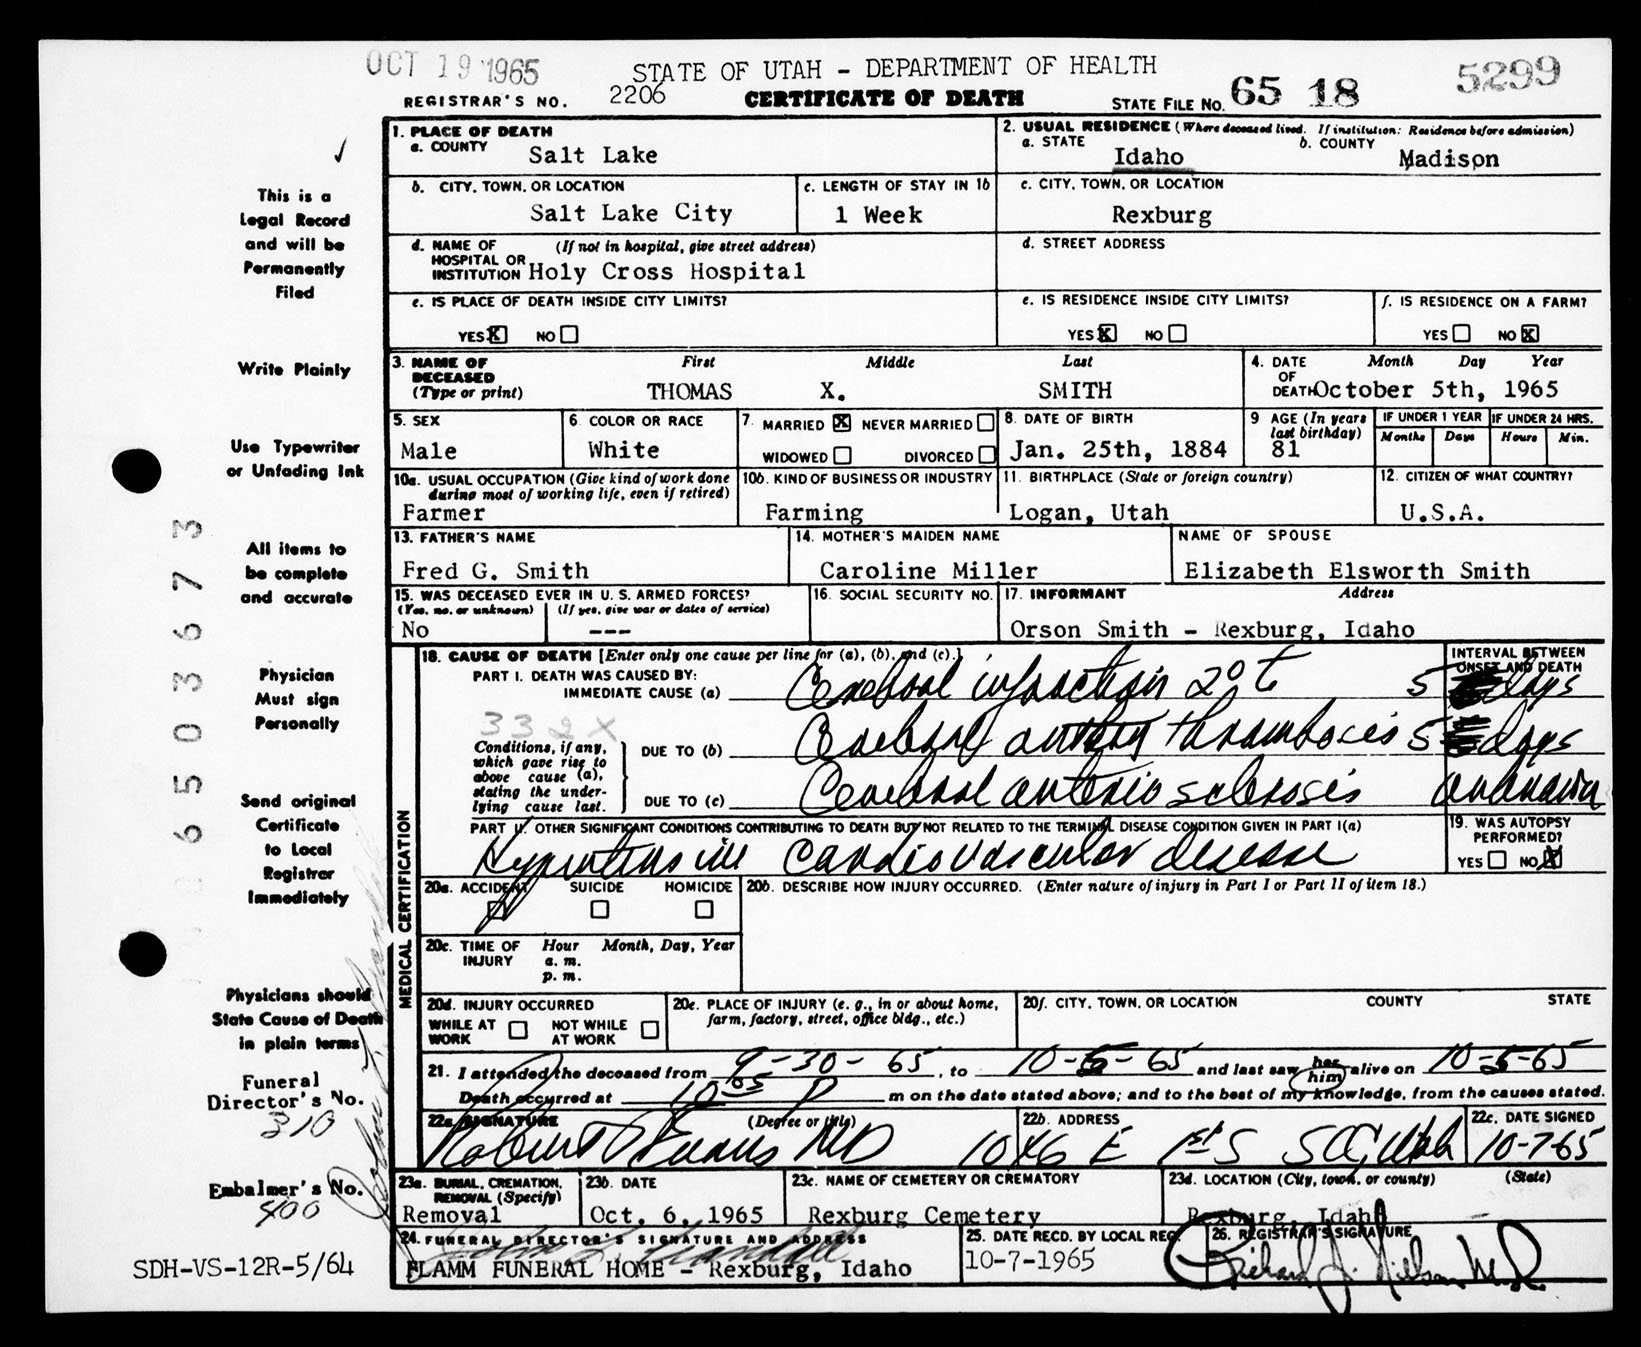 OCT 19 1965
STATE OF UTAH - DEPARTMENT OF HEALTH
5299
REGISTRAR'S NO. 2206 CERTIFICATE OF DEATH STATE FILE NO. 65 18
This is a
Legal Record
and will be
Permanently
Filed
Write Plainly
Use Typewriter
or Unfading Ink
All items to
be complete
and accurate
Physician
Must sign
Personally
Send original
Certificate
to Local
Registrar
Immediately
Physicians should
State Cause of Death
in plain terms
Funeral
Director's No.
310
Embalmer's No.
400
SDH-VS-12R-5/64
65036773
1. PLACE OF DEATH
a. COUNTY Salt Lake
2. USUAL RESIDENCE (Where deceased lived. If institution: Residence before admission)
a. STATE Idaho b. COUNTY Madison
b. CITY, TOWN, OR LOCATION
Salt Lake City
c. LENGTH OF STAY IN 1b
1 Week
c. CITY, TOWN, OR LOCATION
Rexburg
d. NAME OF (If not in hospital, give street address)
HOSPITAL OR
INSTITUTION Holy Cross Hospital
d. STREET ADDRESS
e. IS PLACE OF DEATH INSIDE CITY LIMITS?
YES X NO
e. IS RESIDENCE INSIDE CITY LIMITS?
YES X NO
f. IS RESIDENCE ON A FARM?
YES NO X
3. NAME OF First Middle Last
DECEASED
(Type or print) THOMAS X. SMITH
4. DATE Month Day Year
OF
DEATH October 5th, 1965
5. SEX
Male
6. COLOR OR RACE
White
7. MARRIED X NEVER MARRIED
WIDOWED DIVORCED
8. DATE OF BIRTH
Jan. 25th, 1884
9 AGE (In years
last birthday)
81
IF UNDER 1 YEAR IF UNDER 24 HRS.
Months Days Hours Min.
10a. USUAL OCCUPATION (Give kind of work done
during most of working life, even if retired)
Farmer
10b. KIND OF BUSINESS OR INDUSTRY
Farming
11. BIRTHPLACE (State or foreign country)
Logan, Utah
12. CITIZEN OF WHAT COUNTRY?
U.S.A.
13. FATHER'S NAME
Fred G. Smith
14. MOTHER'S MAIDEN NAME
Caroline Miller
NAME OF SPOUSE
Elizabeth Elsworth Smith
15. WAS DECEASED EVER IN U. S. ARMED FORCES?
(Yes, no, or unknown) (If yes, give war or dates of service)
No ---
16. SOCIAL SECURITY NO.
17. INFORMANT Address
Orson Smith - Rexburg, Idaho
MEDICAL CERTIFICATION
18. CAUSE OF DEATH [Enter only one cause per line for (a), (b), and (c).]
INTERVAL BETWEEN
ONSET AND DEATH
PART I. DEATH WAS CAUSED BY:
IMMEDIATE CAUSE (a) Cerebral infarction 2° t 5 days
332X
Conditions, if any,
which gave rise to
above cause (a),
stating the under-
lying cause last.
DUE TO (b) Cerebral artery thrombosis 5 days
DUE TO (c) Cerebral arteriosclerosis unknown
PART II. OTHER SIGNIFICANT CONDITIONS CONTRIBUTING TO DEATH BUT NOT RELATED TO THE TERMINAL DISEASE CONDITION GIVEN IN PART I(a)
Hypertensive Cardiovascular disease
19. WAS AUTOPSY
PERFORMED?
YES NO X
20a. ACCIDENT SUICIDE HOMICIDE
20b. DESCRIBE HOW INJURY OCCURRED. (Enter nature of injury in Part I or Part II of item 18.)
20c. TIME OF Hour Month, Day, Year
INJURY a. m.
p. m.
20d. INJURY OCCURRED
WHILE AT NOT WHILE
WORK AT WORK
20e. PLACE OF INJURY (e. g., in or about home,
farm, factory, street, office bldg., etc.)
20f. CITY, TOWN, OR LOCATION COUNTY STATE
21. I attended the deceased from 9-30-65, to 10-5-65 and last saw her him alive on 10-5-65
Death occurred at 10 05 P m on the date stated above; and to the best of my knowledge, from the causes stated.
22a. SIGNATURE (Degree or title)
Robert Evans MD
22b. ADDRESS
1046 E 1st S SLC, Utah
22c. DATE SIGNED
10-7-65
23a. BURIAL, CREMATION,
REMOVAL (Specify)
Removal
23b. DATE
Oct. 6, 1965
23c. NAME OF CEMETERY OR CREMATORY
Rexburg Cemetery
23d. LOCATION (City, town, or county) (State)
Rexburg, Idaho
24. FUNERAL DIRECTOR'S SIGNATURE AND ADDRESS
FLAMM FUNERAL HOME - Rexburg, Idaho
25. DATE RECD. BY LOCAL REG.
10-7-1965
26. REGISTRAR'S SIGNATURE
Richard J. Nielsen M.D.